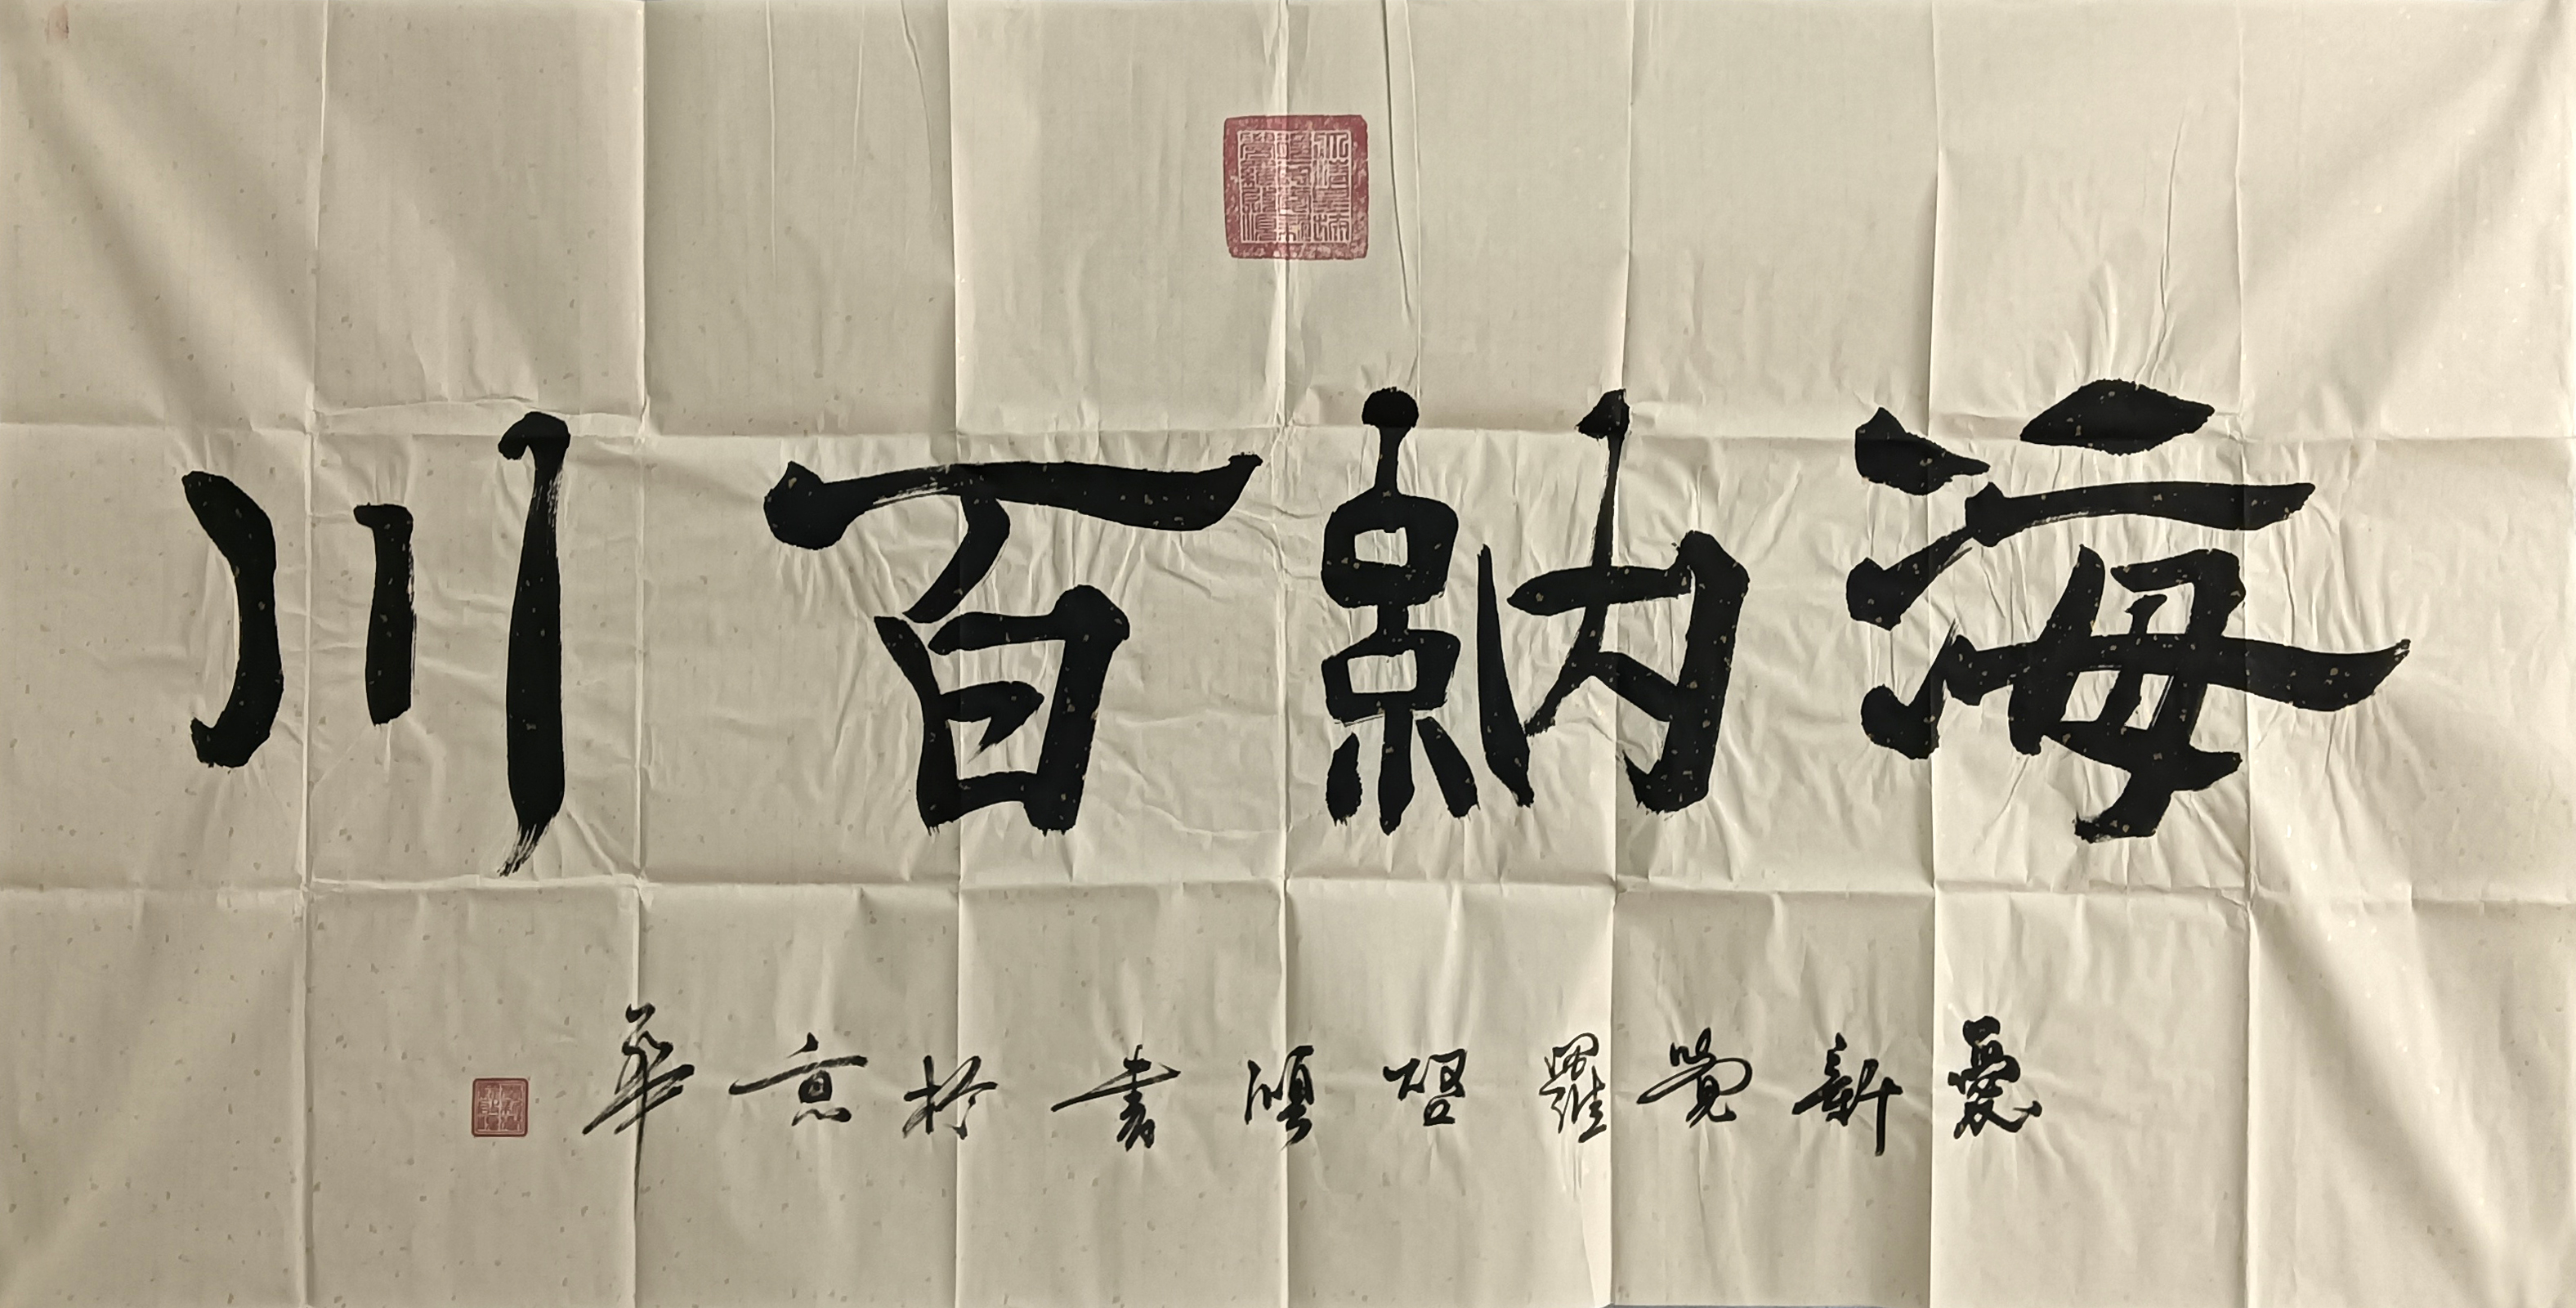 海納百川
愛新覺羅啓頎書於京華